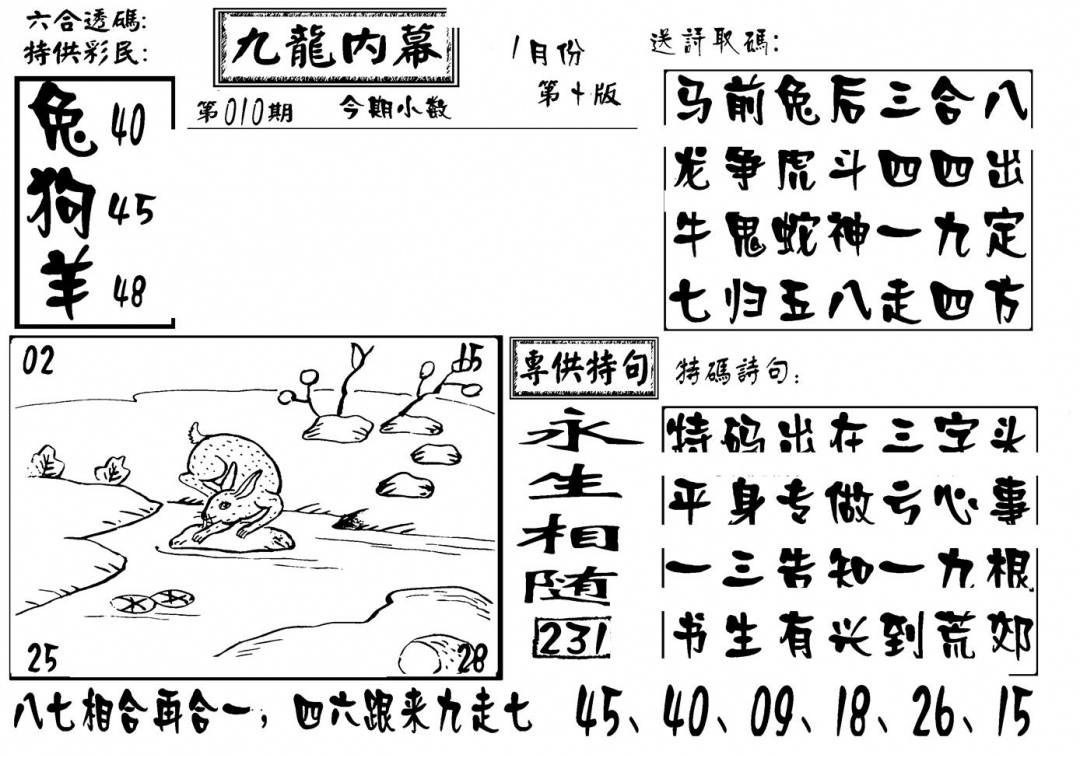 六合透碼:
特供彩民:
兔 40
狗 45
羊 48
九龍内幕
第010期 今期小数
1月份
第4版
送詩取碼:
马前兔后三合八
龙争虎斗四四出
牛鬼蛇神一九定
七归五八走四方
02 15
25 28
專供特句
永生相随
231
特碼詩句:
特码出在三字头
平身专做亏心事
一三告知一九根
书生有兴到荒郊
八七相合再合一，四六跟来九走七 45、40、09、18、26、15